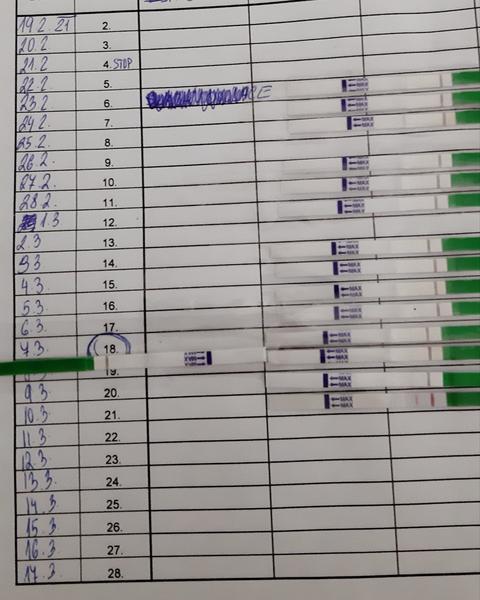 19.2 21 2.
20.2 3.
21.2 4. STOP
22.2 5. ←MAX
23.2 6. ←MAX
24.2 7. ←MAX
25.2. 8.
26.2. 9. ←MAX
27.2. 10. ←MAX
28.2. 11. ←MAX
1.3 12.
2.3 13. ←MAX
3.3 14. ←MAX
4.3 15. ←MAX
5.3 16. ←MAX
6.3 17. ←MAX
7.3 18. MAX→ ←MAX
19. ←MAX
9.3 20. ←MAX
10.3 21.
11.3 22.
12.3 23.
13.3. 24.
14.3 25.
15.3 26.
16.3 27.
17.3. 28.